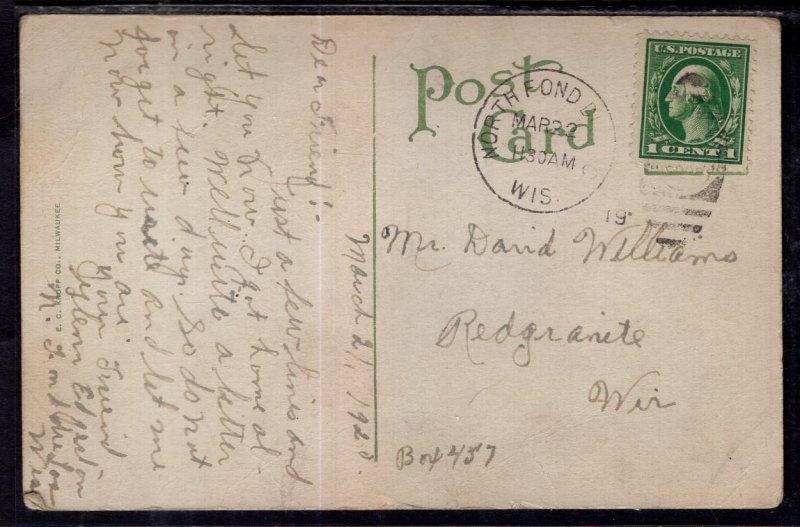 March 21, 1920.
Dear Friend:-
Just a few lines and
let you know. I got home al-
right. Will write a letter
in a few days. So do not
forget to write and let me
now how you are.
Your Friend
N. Fond du Lac
Wis
E. C. KROPP CO., MILWAUKEE
Post
Card
NORTH FOND
MAR 22
1130AM
WIS.
19
U.S. POSTAGE
1 CENT 1
Mr. David Williams
Redgranite
Wis
Box 457